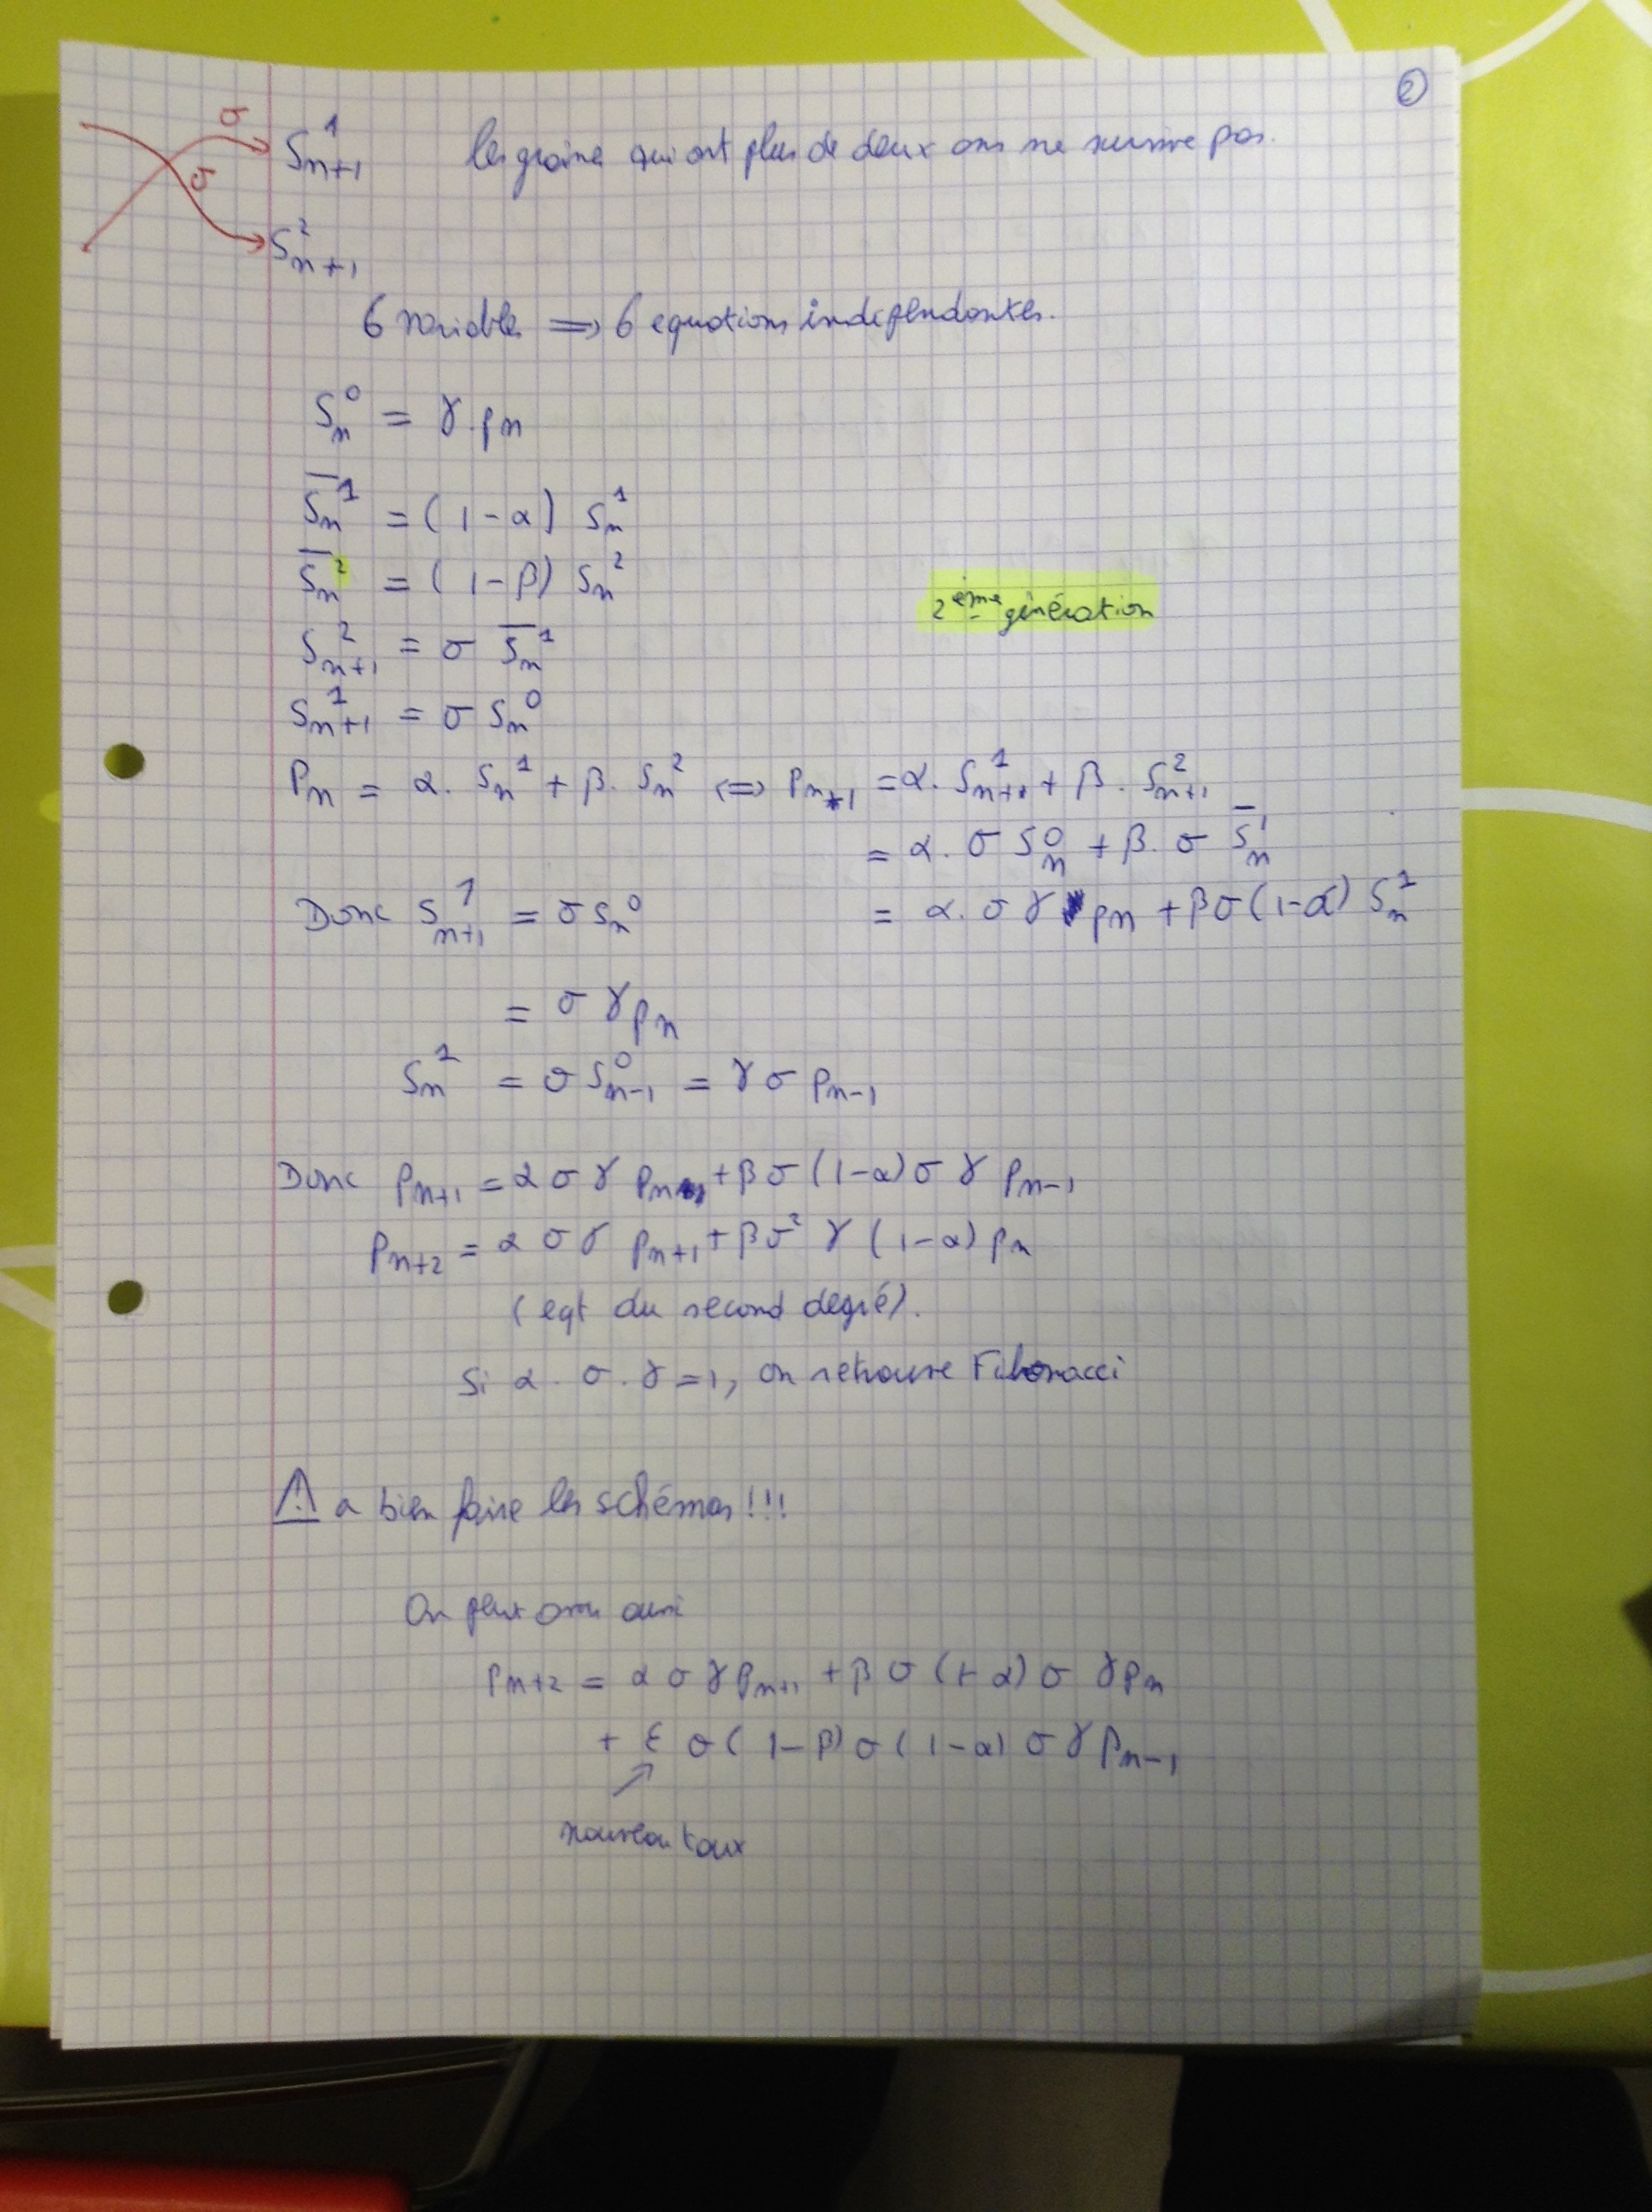 ②
σ S¹ₙ₊₁ les graine qui ont plus de deux ans ne survive pas.
σ
S²ₙ₊₁
6 variables => 6 equations independantes.
Sₙ⁰ = γ.pₙ
S̅ₙ¹ = (1-α) Sₙ¹
S̅ₙ² = (1-β) Sₙ²
2ème génération
S²ₙ₊₁ = σ S̅ₙ¹
S¹ₙ₊₁ = σ Sₙ⁰
Pₙ = α. Sₙ¹ + β. Sₙ² <=> Pₙ₊₁ = α. S¹ₙ₊₁ + β. S²ₙ₊₁
= α. σ Sₙ⁰ + β. σ S̅ₙ¹
Donc S¹ₙ₊₁ = σ Sₙ⁰ = α. σ γ pₙ + βσ(1-α) Sₙ¹
= σ γ pₙ
Sₙ¹ = σ S⁰ₙ₋₁ = γ σ pₙ₋₁
Donc pₙ₊₁ = α σ γ pₙ + β σ (1-α) σ γ pₙ₋₁
pₙ₊₂ = α σ γ pₙ₊₁ + β σ² γ (1-α) pₙ
(eqt du second degré).
Si α . σ . γ = 1, on retrouve Fibonacci
⚠ a bien faire les schémas !!!
On peut avoir aussi
pₙ₊₂ = α σ γ pₙ₊₁ + β σ (1-α) σ γ pₙ
+ ε σ ( 1-β) σ (1-α) σ γ pₙ₋₁
nouveau taux